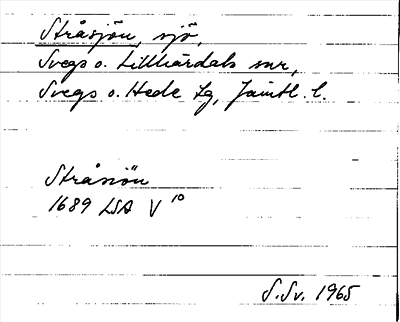 Stråsjön, sjö,
Svegs o. Lillhärdals snr,
Svegs o. Hede tg, Jämtl. l.
Stråsiön
1689 LSA V 10
S.Sv. 1965